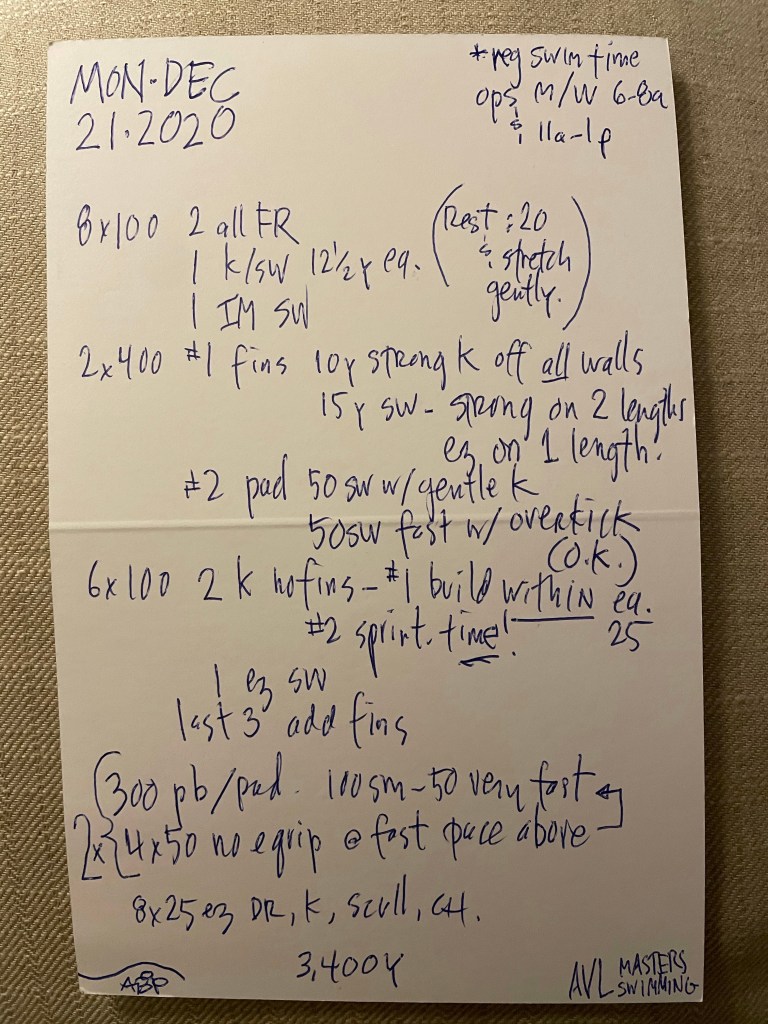 MON-DEC
21.2020
*reg swim time
ops M/W 6-8a
& 11a-1p
8x100 2 all FR
1 K/SW 12 1/2 y ea.
1 IM SW
(Rest :20
& stretch
gently.)
2x400 #1 fins 10y strong K off all walls
15y sw- strong on 2 lengths
ez on 1 length.
#2 pad 50 sw w/gentle K
50 sw fast w/ overkick
(O.K.)
6x100 2 K no fins - #1 build within ea.
25
#2 sprint. time!
1 ez sw
last 3 add fins
2x{300 pb/pad. 100 sm-50 very fast
4x50 no equip @ fast pace above
8x25 ez DR, K, scull, CH.
3,400Y
AVL MASTERS
SWIMMING